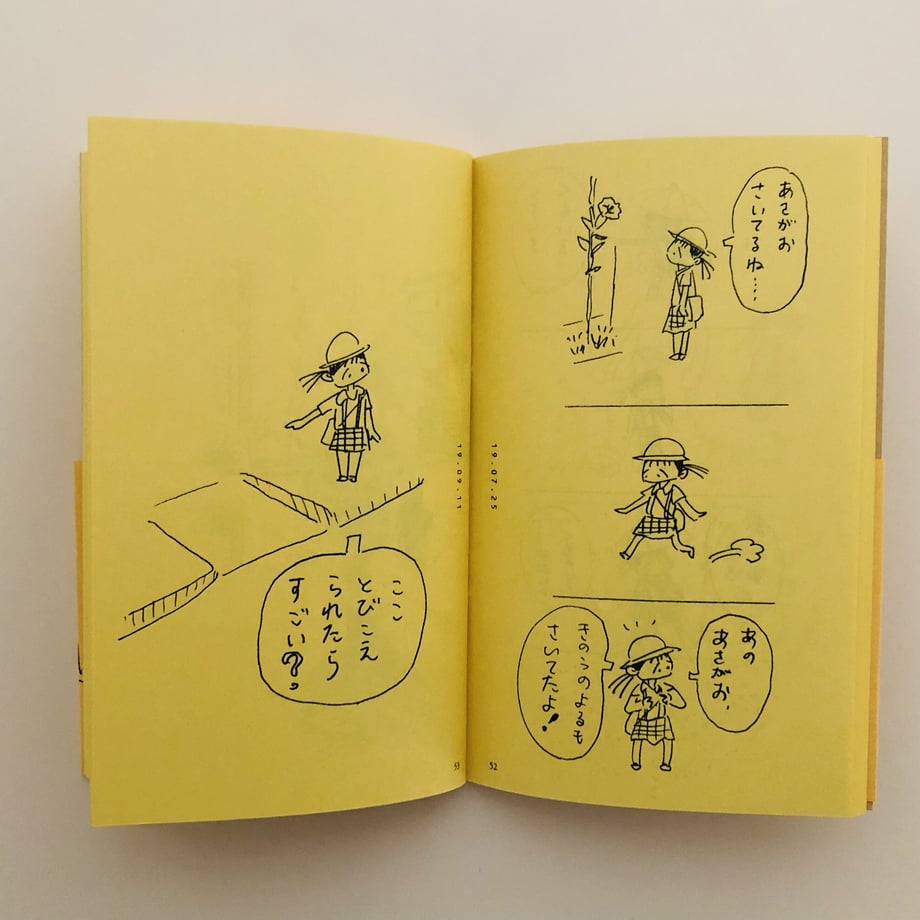 あさがお
さいてるね……
あの
あさがお、
きのうのよるも
さいてたよ！
19.07.25
52
ここ
とびこえ
られたら
すごい？
19.09.11
53